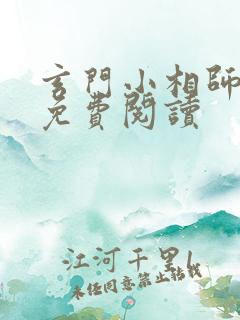 玄門小相師
免費閱讀
江河千里1
未经同意禁止转载